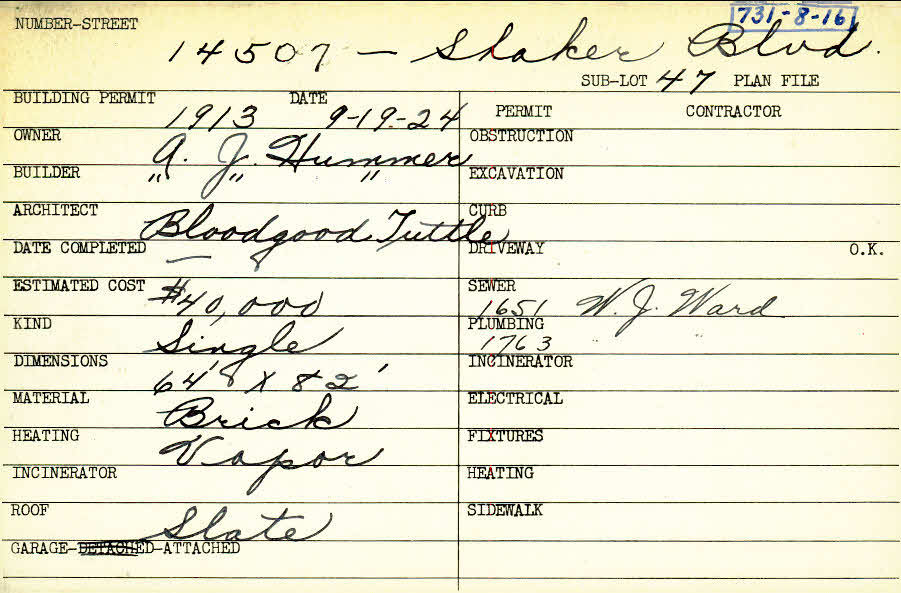 731-8-16
NUMBER-STREET
14507 — Shaker Blvd.
SUB-LOT 47 PLAN FILE
BUILDING PERMIT DATE
1913 9-19-24
OWNER
A. J. Hummer
BUILDER " " "
ARCHITECT
Bloodgood Tuttle
DATE COMPLETED —
ESTIMATED COST $40,000
KIND
Single
DIMENSIONS
64' X 82'
MATERIAL
Brick
HEATING
Vapor
INCINERATOR
ROOF
Slate
GARAGE-DETACHED-ATTACHED
PERMIT CONTRACTOR
OBSTRUCTION
EXCAVATION
CURB
DRIVEWAY O.K.
SEWER
1651 W. J. Ward
PLUMBING
1763 " "
INCINERATOR
ELECTRICAL
FIXTURES
HEATING
SIDEWALK